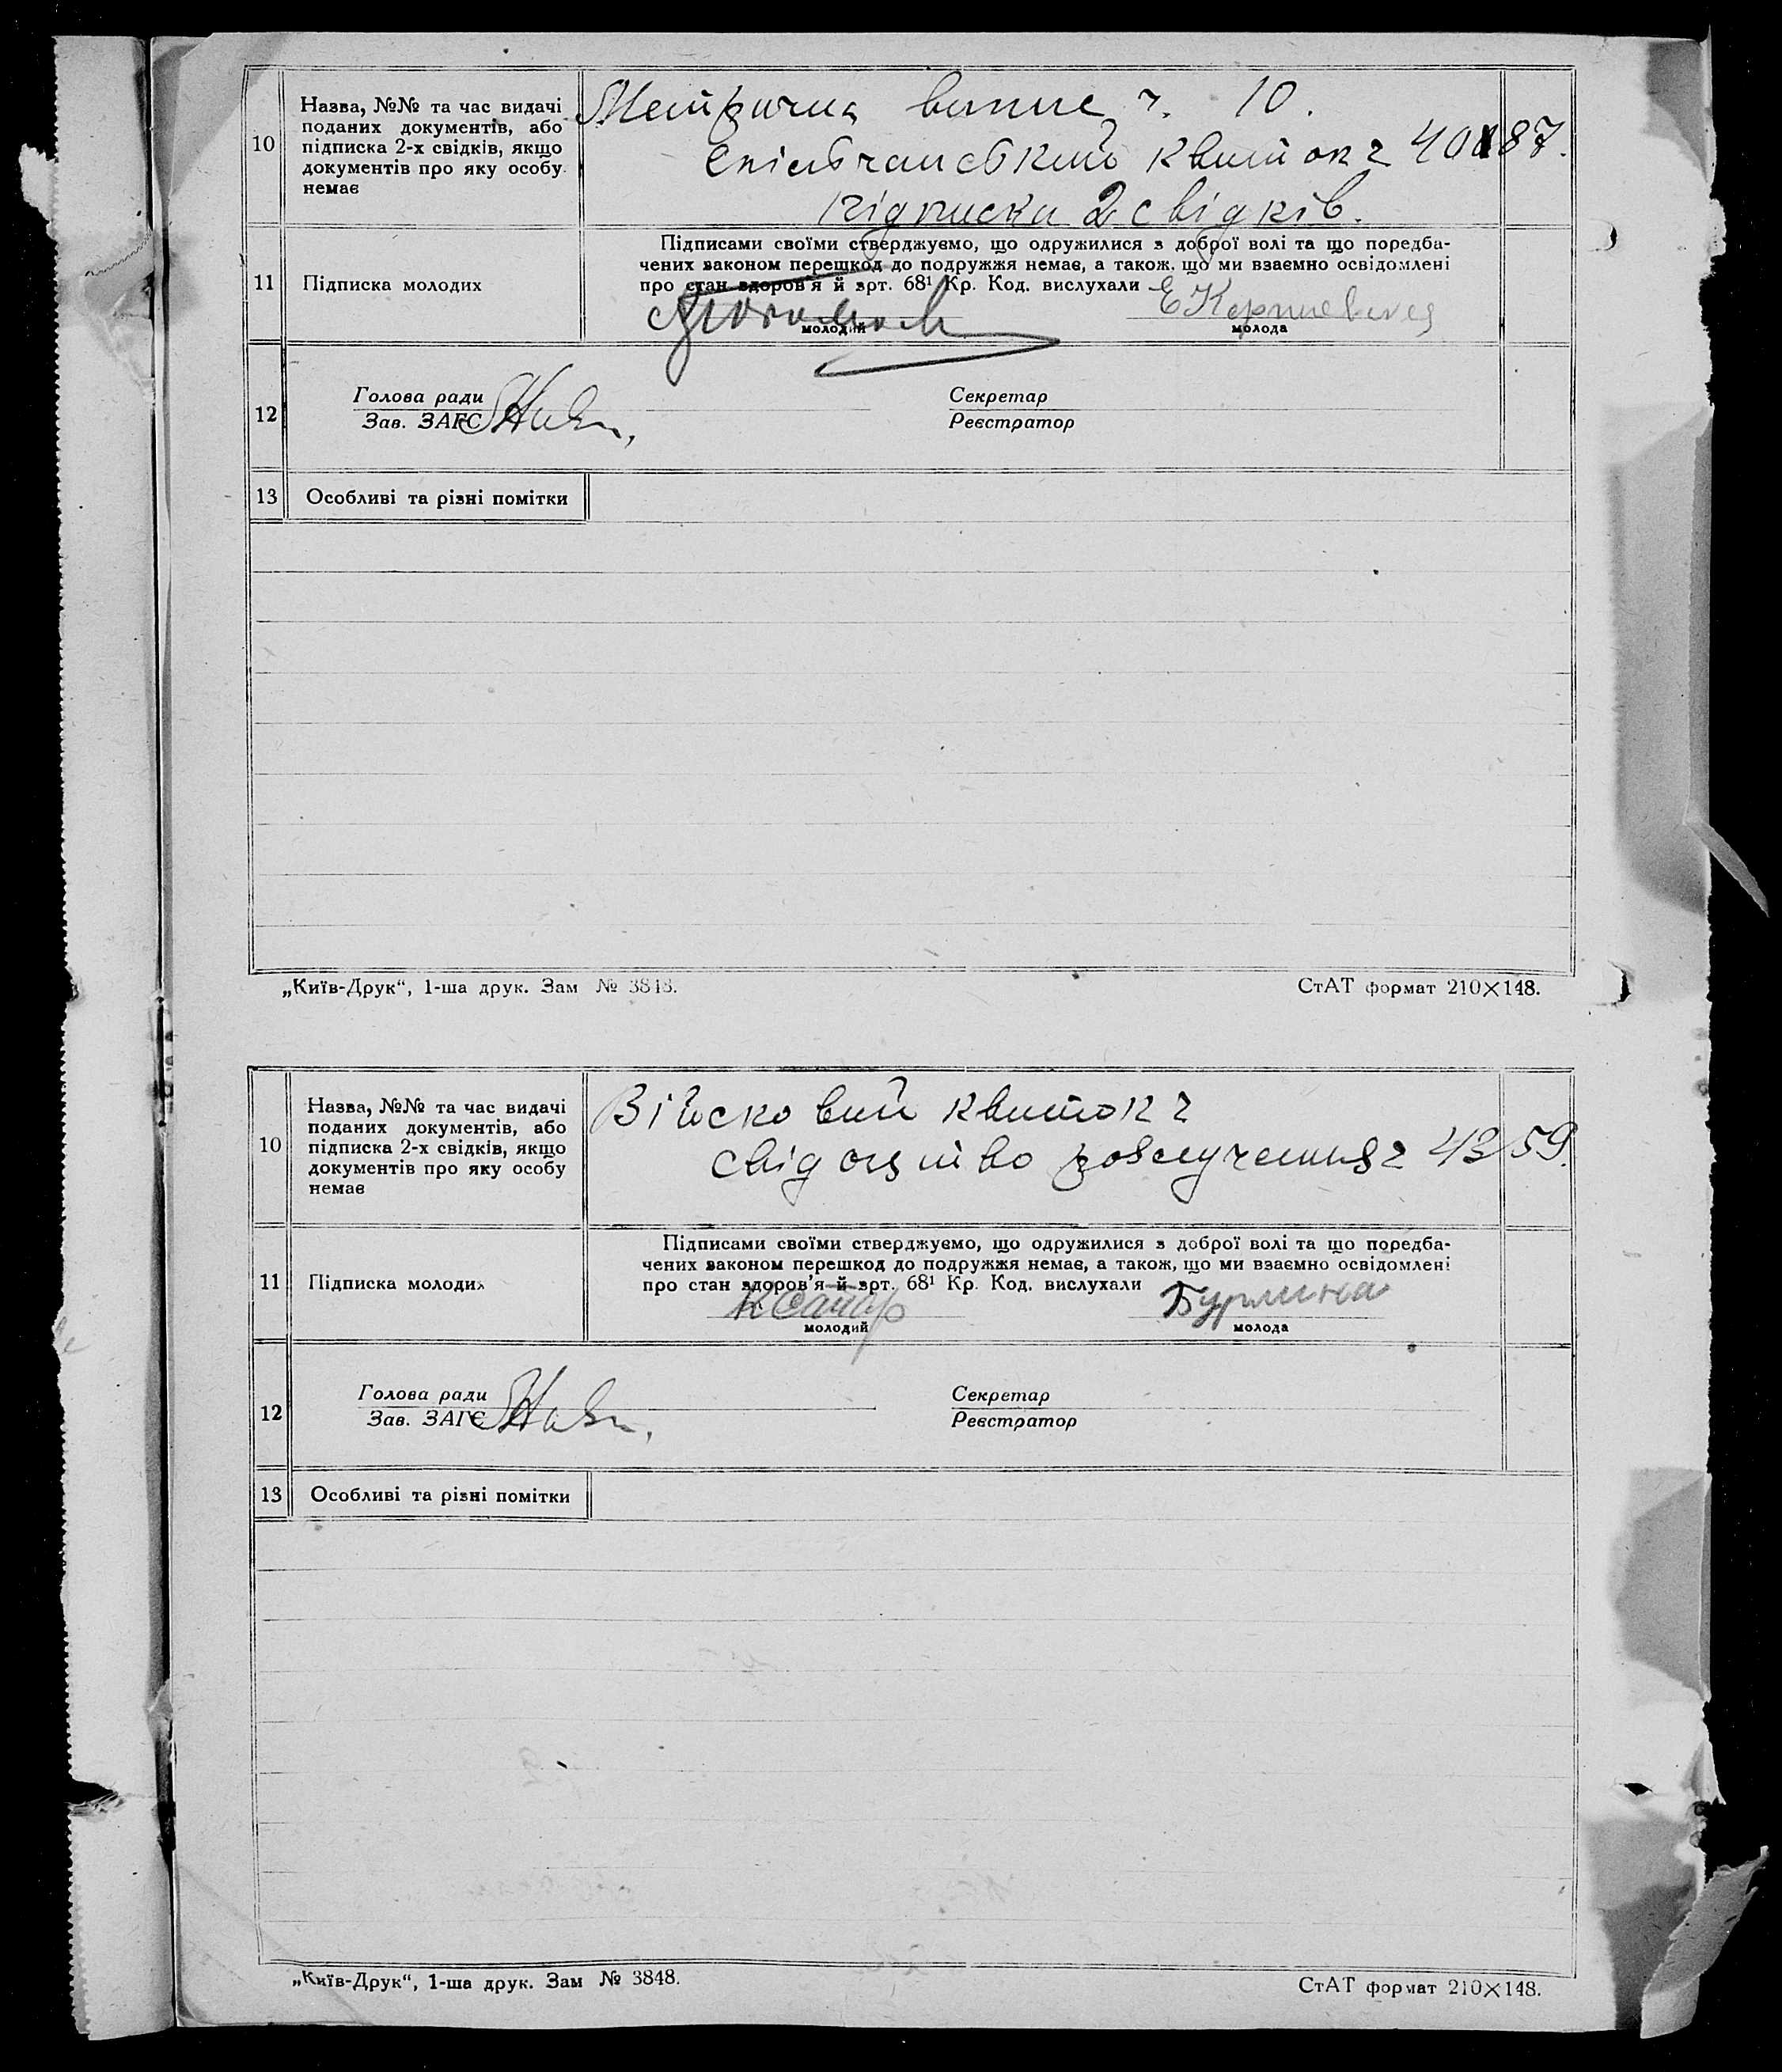 10
Назва, №№ та час видачі
поданих документів, або
підписка 2-х свідків, якщо
документів про яку особу
немає
Метрична випис ч. 10.
Спільчанський квиток ч 40187.
підписка 2 свідків.
11
Підписка молодих
Підписами своїми стверджуємо, що одружилися з доброї волі та що передба-
чених законом перешкод до подружжя немає, а також, що ми взаємно освідомлені
про стан здоров'я й арт. 68¹ Кр. Код. вислухали
молодий
молода
12
Голова ради
Зав. ЗАГС
Секретар
Реєстратор
13
Особливі та різні помітки
„Київ-Друк“, 1-ша друк. Зам № 3848.
СтАТ формат 210×148.
10
Назва, №№ та час видачі
поданих документів, або
підписка 2-х свідків, якщо
документів про яку особу
немає
Війсковий квиток ч
свідоцтво розлучення ч 43/59.
11
Підписка молодих
Підписами своїми стверджуємо, що одружилися з доброї волі та що передба-
чених законом перешкод до подружжя немає, а також, що ми взаємно освідомлені
про стан здоров'я й арт. 68¹ Кр. Код. вислухали
Бурлина
молодий
молода
12
Голова ради
Зав. ЗАГС
Секретар
Реєстратор
13
Особливі та різні помітки
„Київ-Друк“, 1-ша друк. Зам № 3848.
СтАТ формат 210×148.